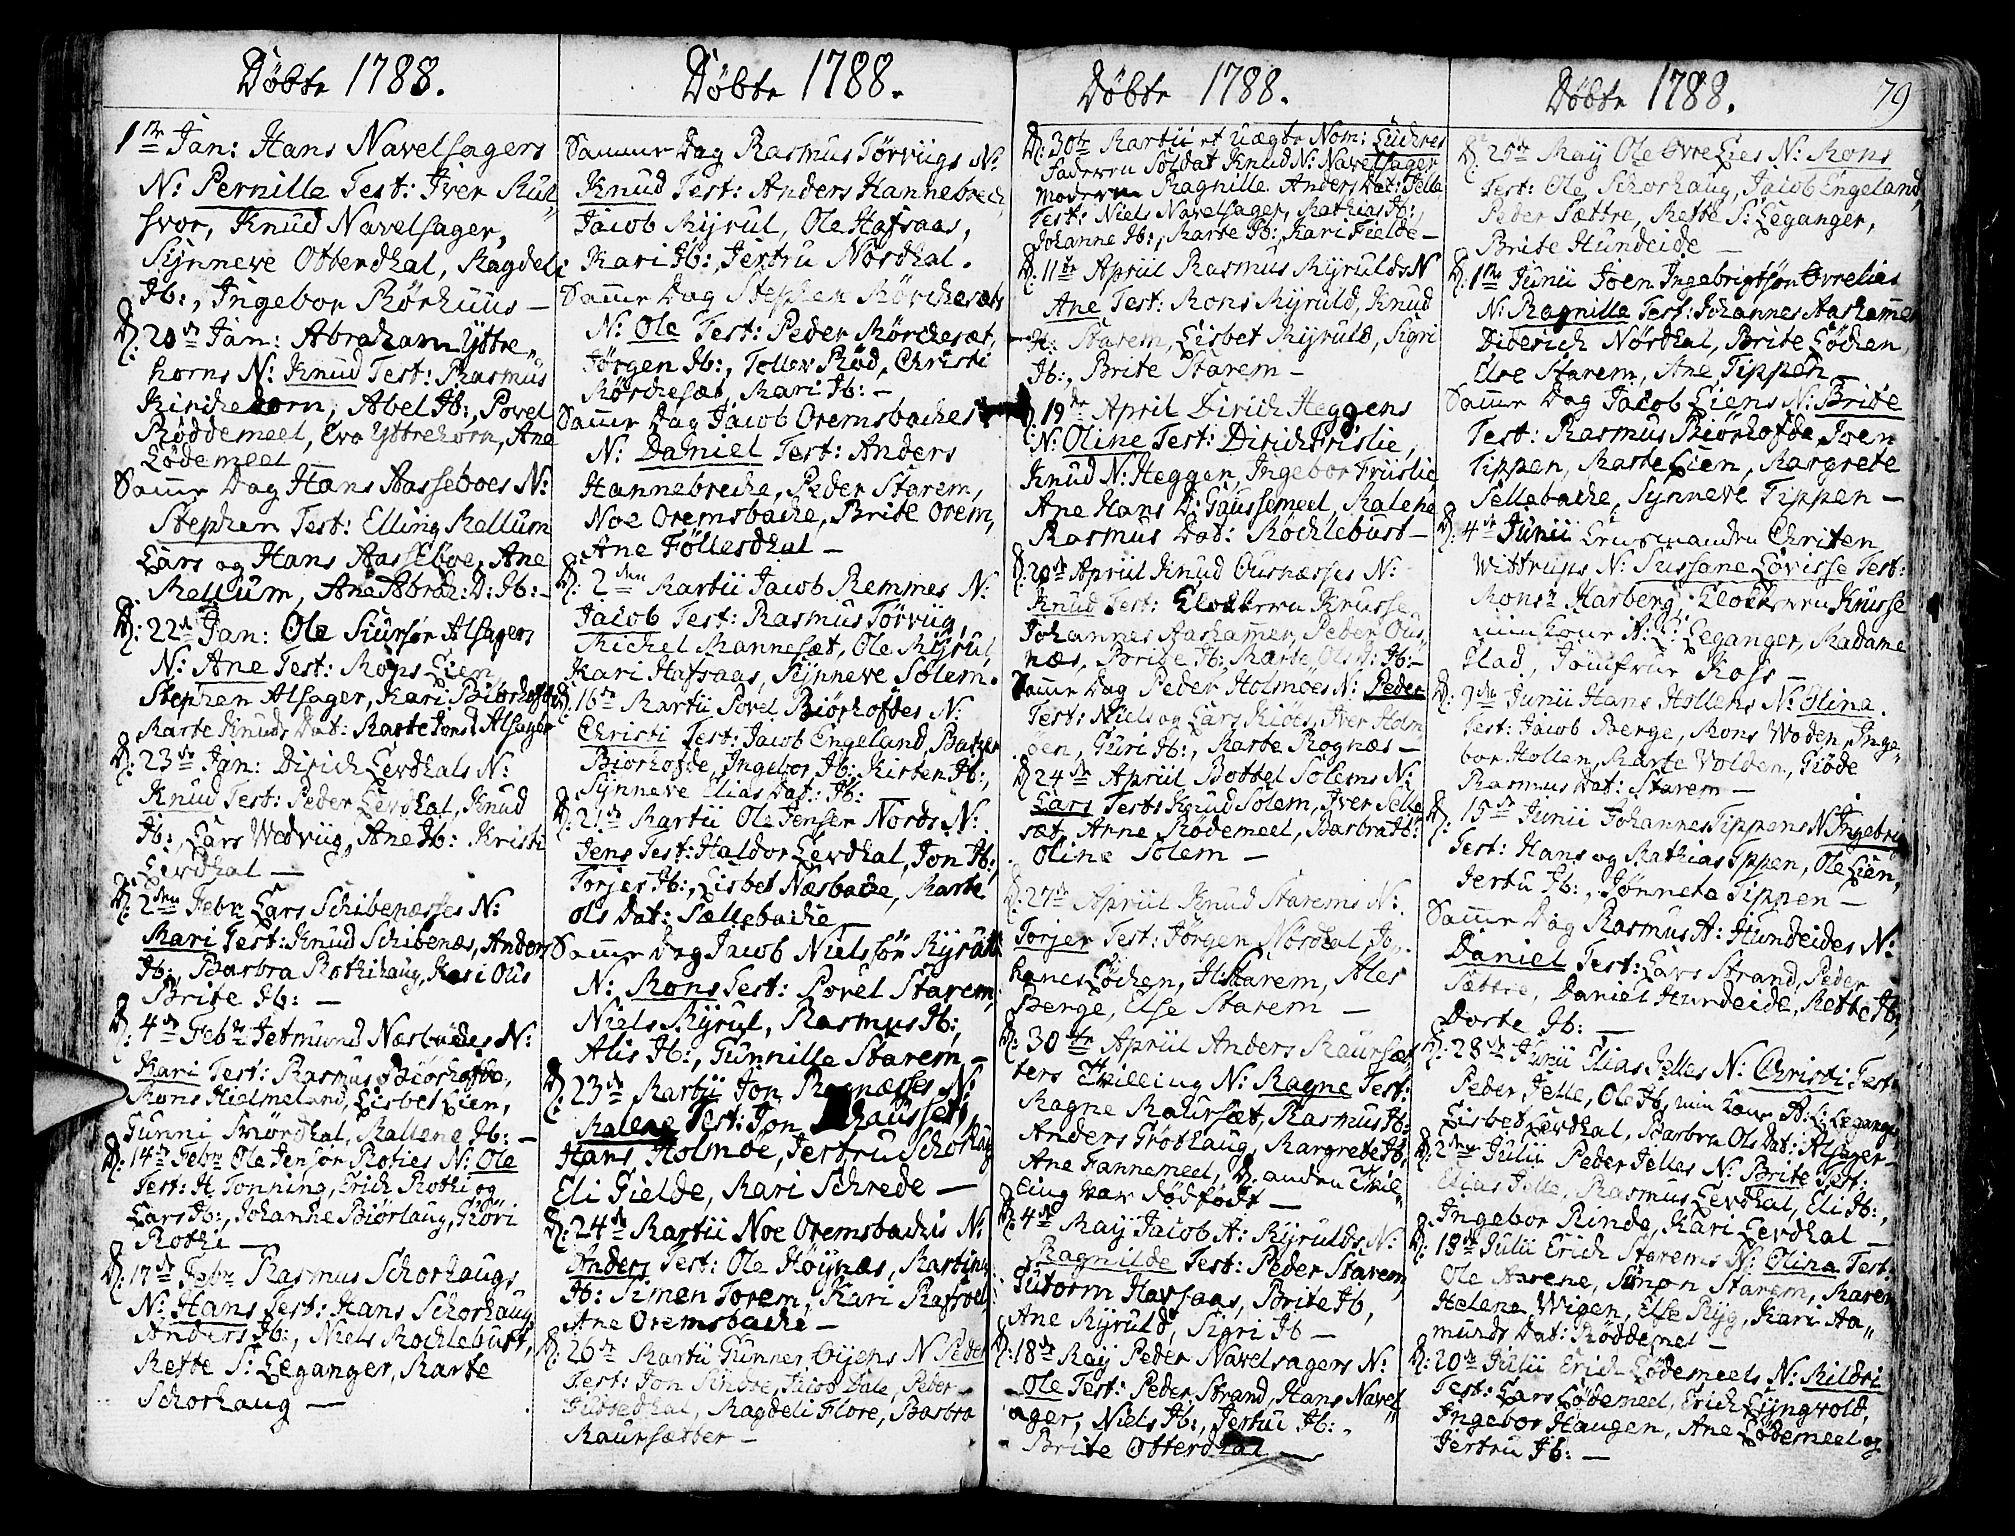 Døbte 1788.
1te Jan: Hans Navelsagers
N: Pernille Test: Iver Mul-
svor, Knud Navelsager,
Synneve Otterdhal, Magdeli
Ib:, Ingebor Mørhuus —
D: 20de Jan: Abraham Yttre-
horns N: Knud Test: Rasmus
Kirchehorn, Abel Ib:, Povel
Røddemeel, Eva Yttrehorn, Ane
Lødemeel —
Samme Dag Hans Aasseboes N:
Stephen Test: Elling Mellum
Lars og Hans Aasseboe, Ane
Mellum, Ane Abrah: D: Ib: —
D: 22de Jan: Ole Siursøn Alsagers
N: Ane Test: Mons Lien,
Stephen Alsager, Kari Biørhofde
Marte Knuds Dat: Marte Jons D Alsager
D: 23de Jan: Dirich Leerdhals N:
Knud Test: Peder Leerdhal, Knud
Ib:, Lars Wedviig, Ane Ib: Kristi
Leerdhal —
D: 2den Febr Lars Schibenæsses N:
Mari Test: Knud Schibenæs, Anders
Ib:, Barbra Rothihaug, Kari Ous
Brite Ib: —
D: 4de Febr Jetmund Næsbødes N:
Kari Test: Rasmus Biørhofde,
Mons Hielmeland, Lisbet Lien,
Gunni Biørdhal, Mallene Ib: —
D: 14de Febr Ole Jensøn Roties N: Ole
Test: H. Tonning, Erich Rothi og
Lars Ib:, Johanne Biørlaug, Giøri
Rothi —
D: 17de Febr Rasmus Schorhaugs
N: Hans Test: Hans Schorhaug
Anders Ib:, Niels Mochlebust,
Mette S: Leganger, Marte
Schorhaug —
Døbte 1788.
Samme Dag Rasmus Tørviigs N:
Knud Test: Anders Hannebrech,
Jacob Myrul, Ole Hafsaas,
Kari Ib:, Jertru Nordhal.
Samme Dag Stephen Mørchesæts
N: Ole Test: Peder Mørchesæt,
Jørgen Ib:, Tollev Rød, Christi
Mørchesæt, Mari Ib: —
Samme Dag Jacob Oremsbaches
N: Daniel Test: Anders
Hannebreche, Peder Starem,
Noe Oremsbache, Brite Orem,
Ane Føllesdhal —
D: 2den Martii Jacob Remmes N:
Jacob Test: Rasmus Tørviig,
Michel Mannesæt, Ole Myrul,
Kari Hafsaas, Synneve Solem.
D: 16de Martii Povel Biørhofdes N:
Christi Test: Jacob Engeland, Batzer
Biørhofde, Ingebor Ib:, Kirsten Ib:,
Synneve Elias Dat: Ib:
D: 21de Martii Ole Jensen Nords N:
Jens Test: Haldor Leerdhal, Jon Ib:,
Torjer Ib:, Lisbet Næsbache, Marte
Ols Dat: Sællebache —
Samme Dag Jacob Nielssøn Myrulds
N: Mons Test: Povel Starem,
Niels Myrul, Rasmus Ib:,
Alis Ib:, Gunnille Starem —
D: 23de Martii Jon Rognæsses N:
Malene Test: Jon
Hans Holmøe, Jertru Schorhaug
Eli Gielde, Mari Schrede —
D: 24de Martii Noe Oremsbachis N:
Anders Test: Ole Høynæs, Martinus
Ib: Simen Torem, Kari Rafsvel,
Ane Oremsbache —
D: 26de Martii Gunner Øyens N Peder
Test: Jon Sindre, Jacob Dale, Peder
Gildsedhal, Magdeli Flore, Barbra
Maursæter —
Døbte 1788.
D: 30te Martii et Uægte Nom: Luchres
Faderen Soldat Knud N: Navelsager
Moderen Magnille Anders Dat: Jelle
Test: Niels Navelsager, Mathias Ib:,
Johanne Ib:, Marte Ib:, Kari Fielde —
D: 11te Apriil Rasmus Myrulds N
Ane Test: Mons Myruld, Knud
H: Starem, Lisbet Myruld, Sigri
Ib:, Brite Starem —
D: 19de April Dirich Heggens
N: Oline Test: Dirich Friislie,
Knud N: Heggen, Ingebor Friislie
Ane Hans D: Gaussemeel, Malene
Rasmus Dat: Mochlebust —
D: 20de Apriil Knud Ousnæsses N:
Knud Test: Klockeren Krusse,
Johannes Aashammer, Peder Ous-
næs, Brite Ib: Marte, Ols D: Ib: —
Samme Dag Peder Holmøes N: Peder
Test: Niels og Lars Kiøes, Iver Holm-
øen, Guri Ib:, Marte Rognæs —
D: 24de Apriil Bottel Solems N:
Lars Test: Knud Solem, Iver Selle-
sæt, Anne Rødemeel, Barbra Ib:
Oline Solem —
D: 27de Apriil Knud Starems N:
Torjer Test: Jørgen Nordhal, Jo-
hanes Løchen, H: Starem, Ales
Berge, Else Starem —
D: 30te Apriil Anders Maursæ-
ters Tvilling N: Magne Test:
Magne Maursæt, Rasmus Ib:
Anders Grøthaug, Margrete Ib,
Ane Fannemeel, D: anden Tvil-
ling var dødfødt —
D: 4de May Jacob A: Myrulds N:
Magnilde Test: Peder Starem,
Gutorm Havsaas, Brite Ib,
Ane Myruld, Sigri Ib —
D: 18de May Peder Navelsagers N:
Ole Test: Peder Strand, Hans Navel-
ager, Niels Ib:, Jertru Ib:
Brite Otterdhal —
Døbte 1788.
79
D: 25de May Ole Øvre Lies N: Mons
Test: Ole Schorhaug, Jacob Engeland,
Peder Sættre, Mette S: Leganger,
Brite Hundeide —
D: 1te Junii Joen Ingebrigtsøn Øvrelies
N: Magnille Test: Johannes Aashamer
Diderich Nordhal, Brite Løchen,
Else Starem, Ane Tippen —
Samme Dag Jacob Liens N: Brite
Test: Rasmus Biørhofde, Joen
Tippen, Marte Lien, Margrete
Sellebache, Synneve Tippen —
D: 4de Junii Lensmanden Christen
Wittrups N: Sussane Lovisse Test:
Monsr Harberg, Klockeren Krusse
min Kone A: L: Leganger, Madame
Flad, Jomfrue Koss —
D: 7de Junii Hans Hollens N: Olina.
Test: Jacob Berge, Mons Woden, Inge-
bor Hollen, Marte Volden, Giøde
Rasmus Dat: Starem —
D: 15de Junii Johannes Tippens N Ingebrig
Test: Hans og Mathias Tippen, Ole Lien,
Jertru Ib:, Jønneta Tippen —
Samme Dag Rasmus A: Hundeides N:
Daniel Test: Lars Strand, Peder
Sættre, Daniel Hundeide, Mette Ib,
Dorte Ib: —
D: 28de Junii Elias Jelles N: Christi Test:
Peder Jelle, Ole Ib, min Kone A: L: Leganger
Lisbet Leerdhal, Barbra Ols Dat: Alsager —
D: 2den Julii Peder Jelles N: Brite Test:
Elias Jelle, Rasmus Leerdhal, Eli Ib:,
Ingebor Rinde, Kari Leerdhal —
D: 13de Julii Erich Starems N: Olina Test:
Ole Aarene, Simon Starem, Maren
Helene Wigen, Else Ryg, Kari Aa-
munds Dat: Røddemel —
D: 20de Julii Erich Lødemeels N: Mildri
Test: Lars Lødemeel, Erich Lyngvold,
Ingebor Haugen, Ane Lødemeel og
Jertru Ib: —